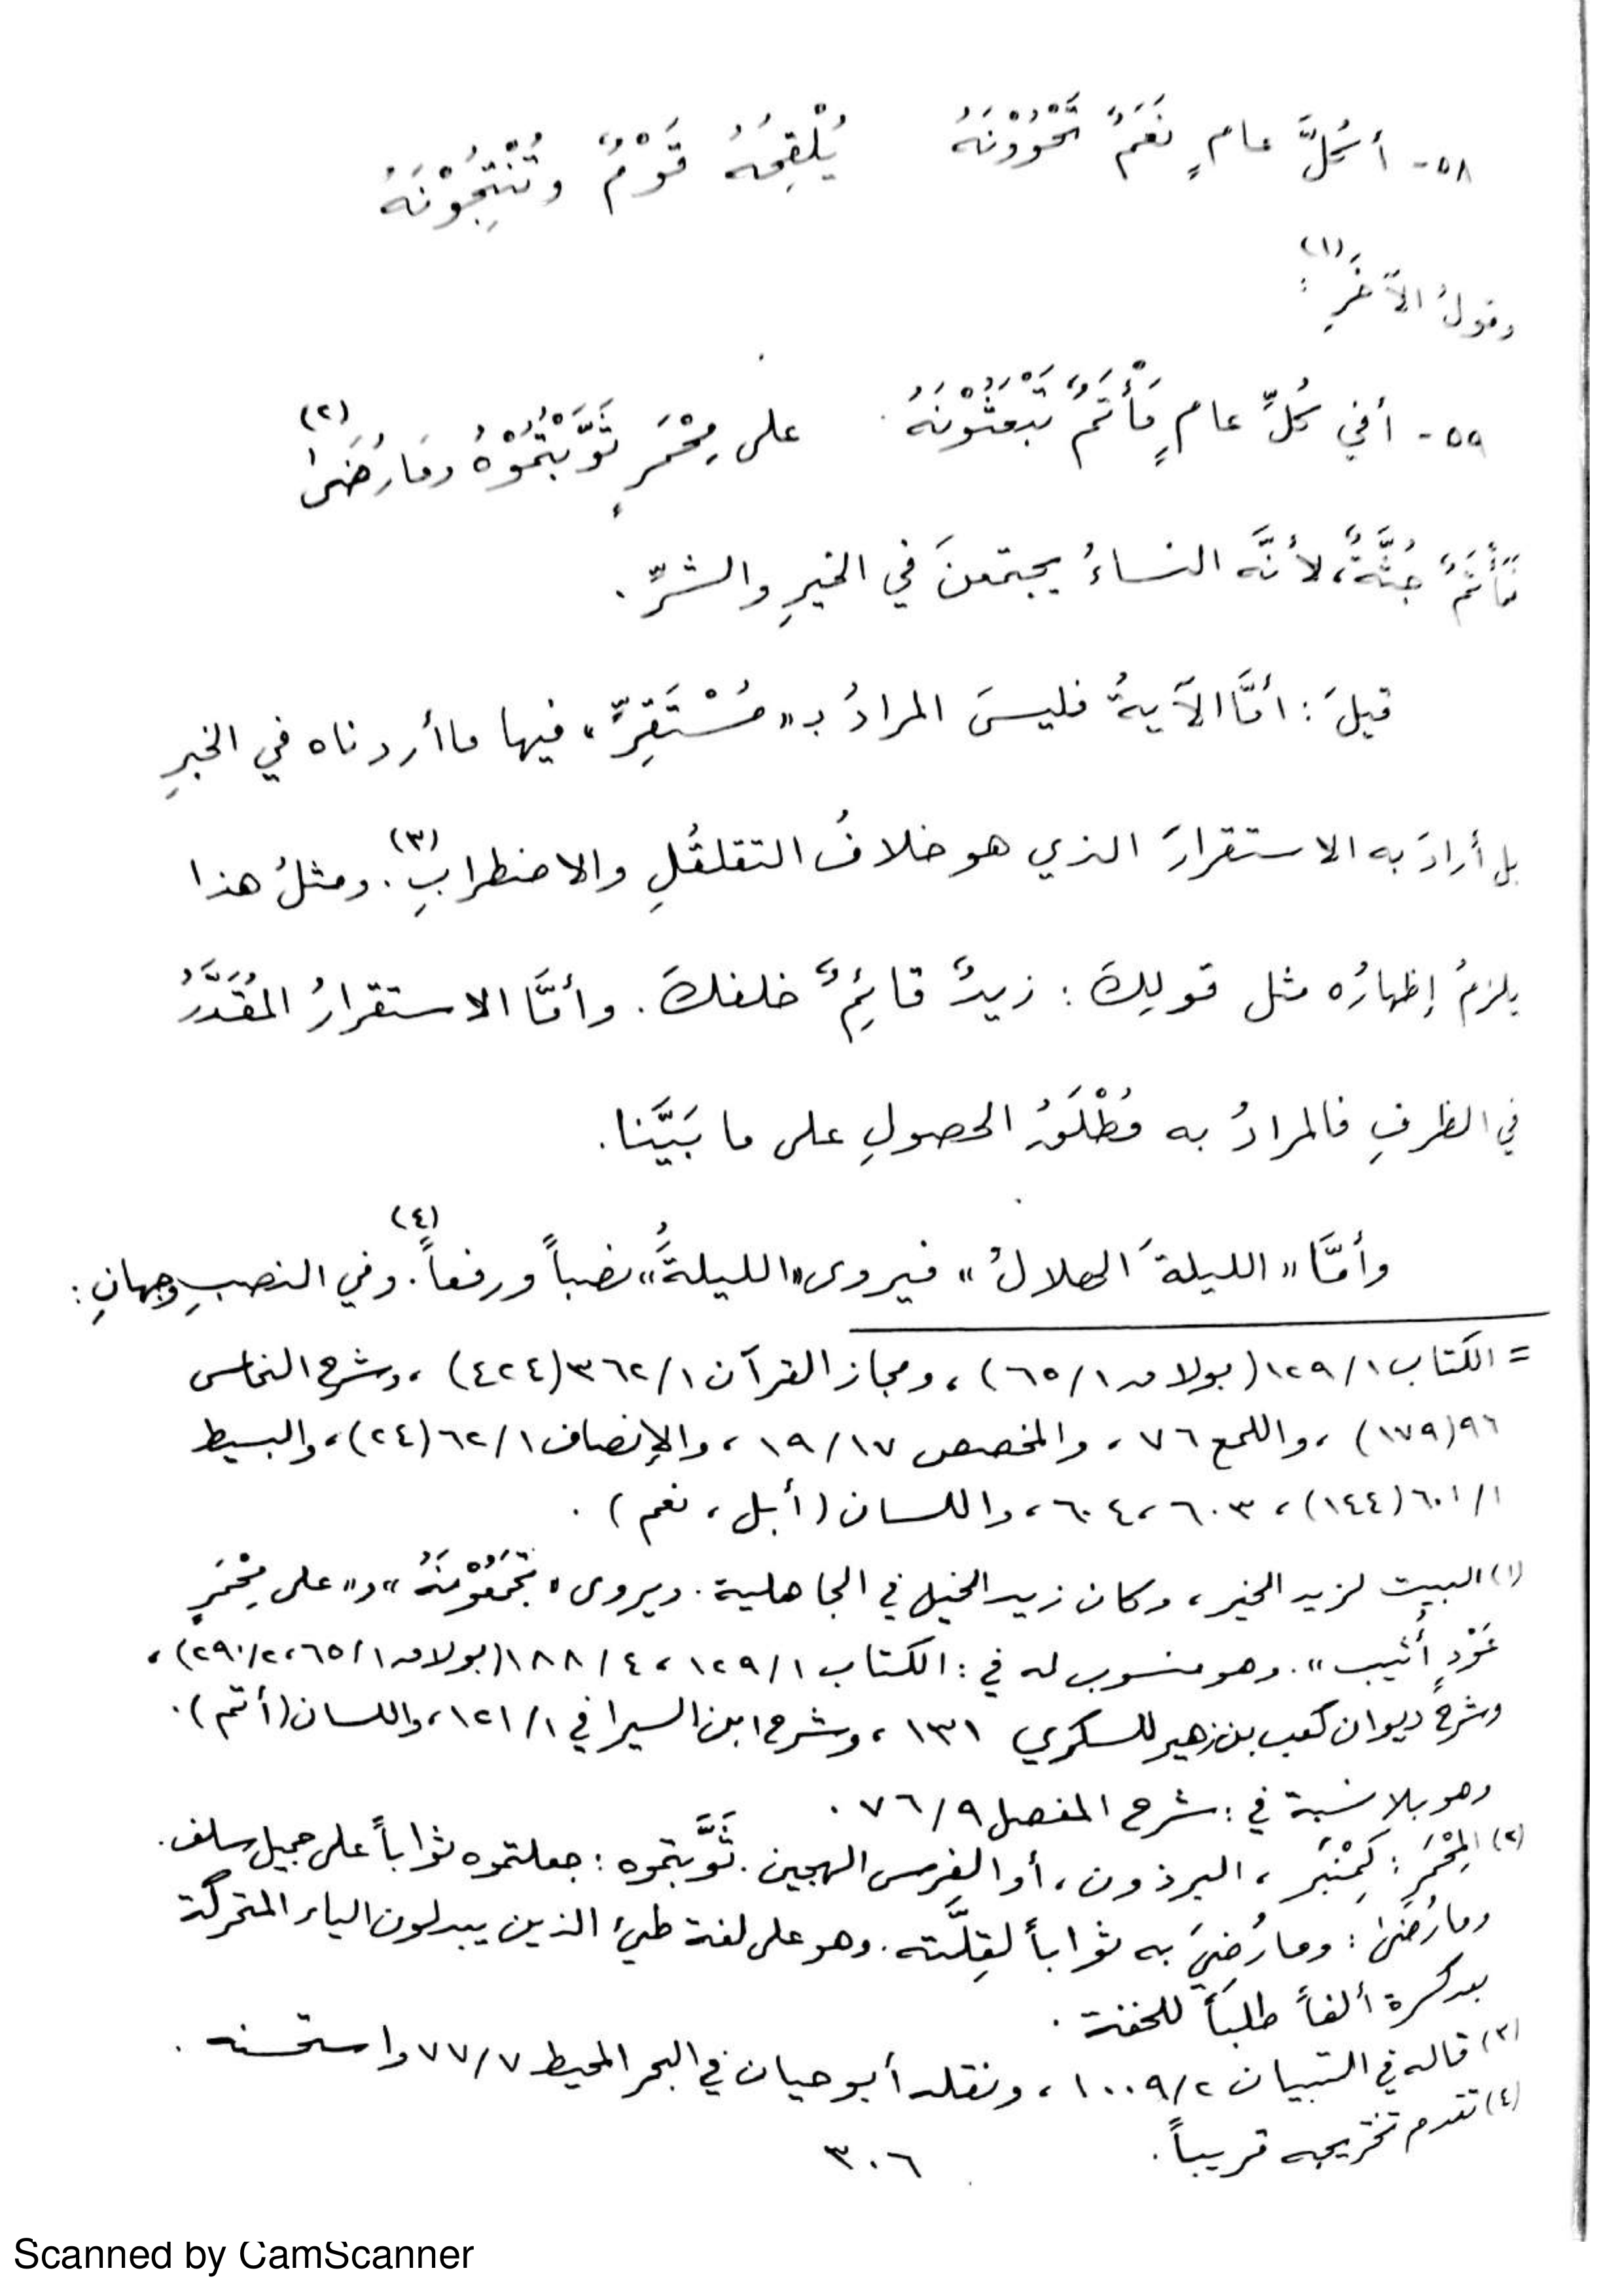 ٥٨- أكُلَّ عامٍ نَعَمٌ تَحْوُوْنَهُ يُلْقِحُهُ قَوْمٌ وتُنْتِجُوْنَهُ
وقولُ الآخَرِ(١):
٥٩- أفي كُلِّ عامٍ مَأْتَمٌ تَبْعَثُوْنَهُ على مِحْمَرٍ ثَوَّبْتُمُوْهُ ومَا رُضَىٰ(٢)
فَمَأْتَمٌ جُثَّةٌ، لأنَّه النساءُ يجتمعنَ في الخيرِ والشرِّ.
قيلَ: أمَّا الآيةُ فليسَ المرادُ بـ «مُسْتَقِرٍّ» فيها ما أردناه في الخبرِ
بل أرادَ به الاستقرارَ الذي هو خلافُ التقلقُلِ والاضطرابِ(٣). ومثلُ هذا
يلزمُ إظهارُه مثل قولِكَ: زيدٌ قائِمٌ خلفكَ. وأمَّا الاستقرارُ المُقَدَّرُ
في الظرفِ فالمرادُ به مُطْلَقُ الحصولِ على ما بَيَّنا.
وأمَّا «الليلةَ الهلالُ» فيروى «الليلةَُ» نصباً ورفعاً(٤). وفي النصبِ وجهانِ:
= الكتاب ١/١٢٩ (بولاق ١/٦٥)، ومجاز القرآن ١/٣٦٢ (٤٢٤)، وشرح النحاس
٩٦ (١٧٩)، واللمع ٧٦، والمخصص ١٧/١٩، والإنصاف ١/٦٢ (٢٤)، والبسيط
١/٦٠١ (١٤٤)، ٦٠٣، ٦٠٤، واللسان (أبل، نعم).
(١) البيت لزيد الخير، وكان زيد الخيل في الجاهلية. ويروى «تَجْمَعُوْنَهُ» و«على مِحْمَرٍ
عَوْدٍ أُثيب». وهو منسوب له في: الكتاب ١/١٢٩، ٤/١٨٨ (بولاق ١/٦٥، ٢/٢٩٠)،
وشرح ديوان كعب بن زهير للسكري ١٣١، وشرح ابن السيرافي ١/١٢١، واللسان (أتم).
وهو بلا نسبة في: شرح المفصل ٩/٧٦.
(٢) المِحْمَر: كَمِنْبَر، البرذون، أو الفرس الهجين. ثَوَّبتموه: جعلتموه ثواباً على جميل سلف.
وما رُضَىٰ: وما رُضيَ به ثواباً لقِلَّته. وهو على لغة طيئ الذين يبدلون الياء المتحركة
بعد كسرة ألفاً طلباً للخفة.
(٣) قاله في التبيان ٢/١٠٠٩، ونقله أبو حيان في البحر المحيط ٧/٧٧ واستحسنه.
(٤) تقدم تخريجه قريباً.
٣٠٦
Scanned by CamScanner